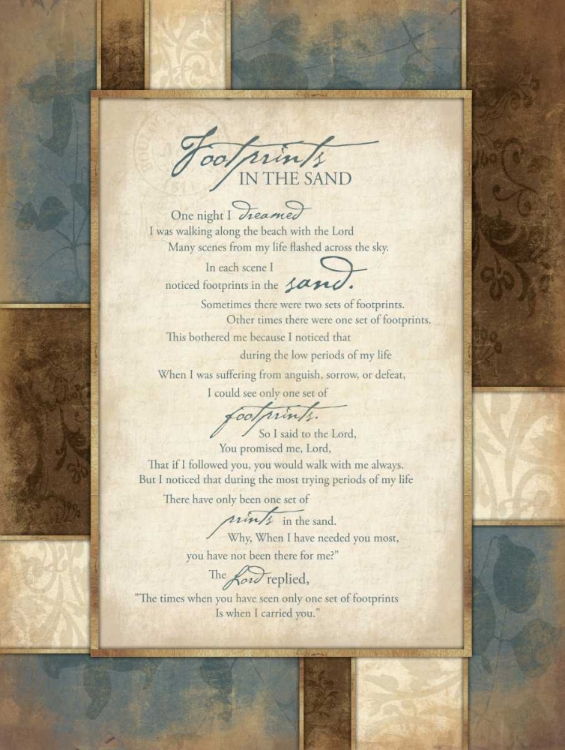 Footprints
IN THE SAND
One night I dreamed
I was walking along the beach with the Lord
Many scenes from my life flashed across the sky.
In each scene I
noticed footprints in the sand.
Sometimes there were two sets of footprints.
Other times there were one set of footprints.
This bothered me because I noticed that
during the low periods of my life
When I was suffering from anguish, sorrow, or defeat,
I could see only one set of
footprints.
So I said to the Lord,
You promised me, Lord,
That if I followed you, you would walk with me always.
But I noticed that during the most trying periods of my life
There have only been one set of
prints in the sand.
Why, When I have needed you most,
you have not been there for me?"
The Lord replied,
"The times when you have seen only one set of footprints
Is when I carried you."